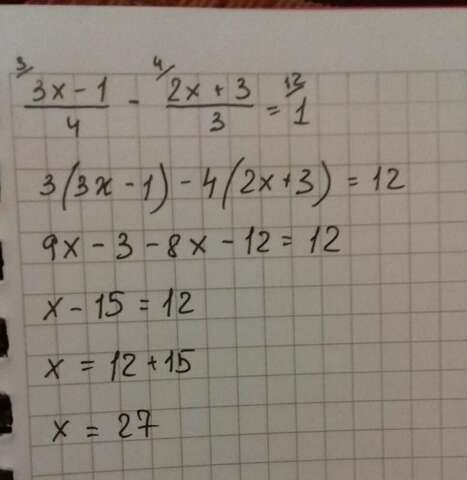 3/ 4/ 12/
(3x - 1)/4 - (2x + 3)/3 = 1
3(3x - 1) - 4(2x + 3) = 12
9x - 3 - 8x - 12 = 12
x - 15 = 12
x = 12 + 15
x = 27